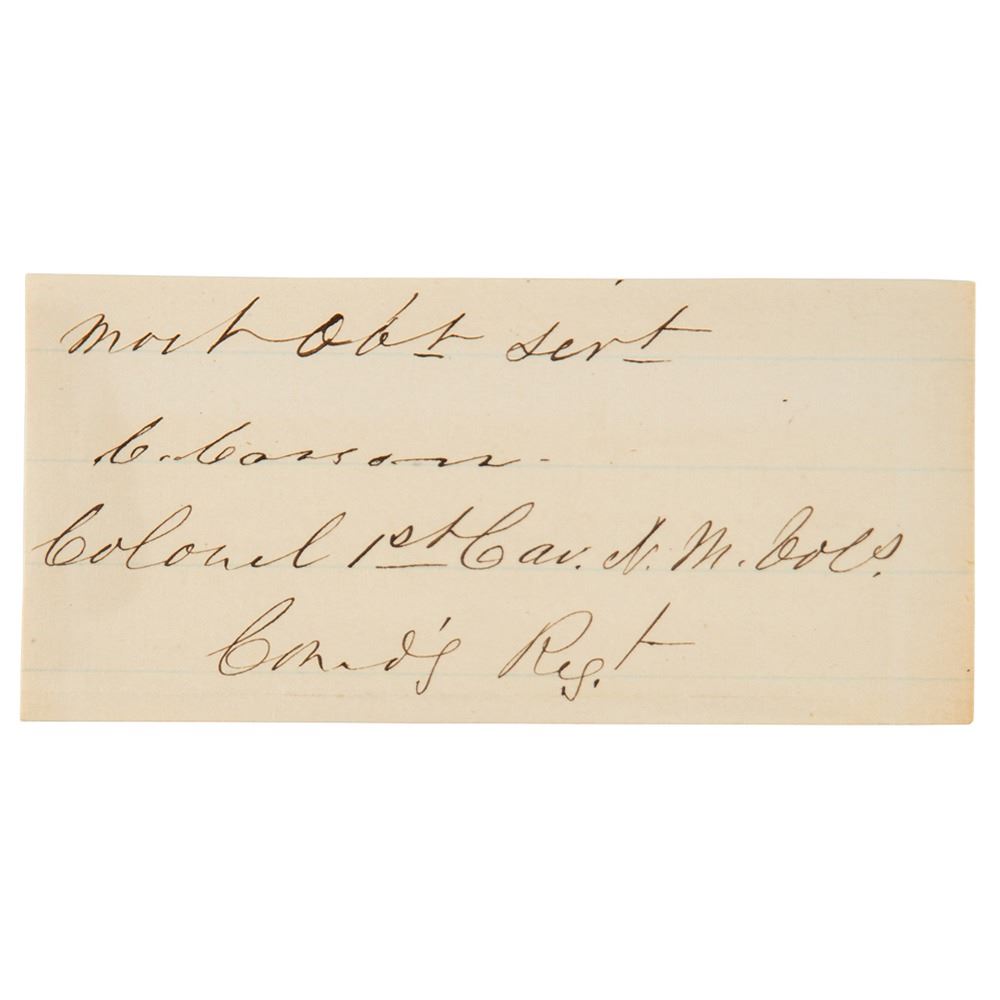 Most Obt Servt
C. Carson.
Colonel 1st Cav. N. M. Vols.
Comd'g Regt